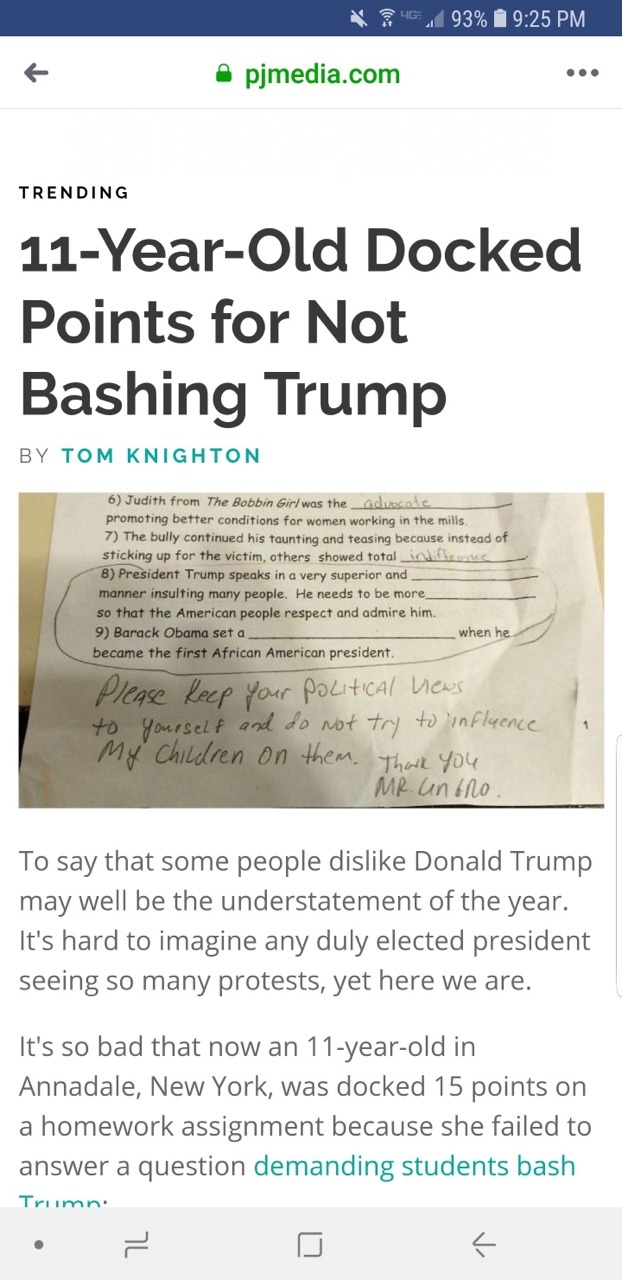 4GE 93% 9:25 PM
pjmedia.com
TRENDING
11-Year-Old Docked
Points for Not
Bashing Trump
BY TOM KNIGHTON
6) Judith from The Bobbin Girl was the advocate
promoting better conditions for women working in the mills.
7) The bully continued his taunting and teasing because instead of
sticking up for the victim, others showed total indifference.
8) President Trump speaks in a very superior and
manner insulting many people. He needs to be more
so that the American people respect and admire him.
9) Barack Obama set a when he
became the first African American president.
Please keep your POLITICAL Views
to yourself and do not try to influence
My Children on them. Thank you
MR.
To say that some people dislike Donald Trump
may well be the understatement of the year.
It's hard to imagine any duly elected president
seeing so many protests, yet here we are.
It's so bad that now an 11-year-old in
Annadale, New York, was docked 15 points on
a homework assignment because she failed to
answer a question demanding students bash
Trump: